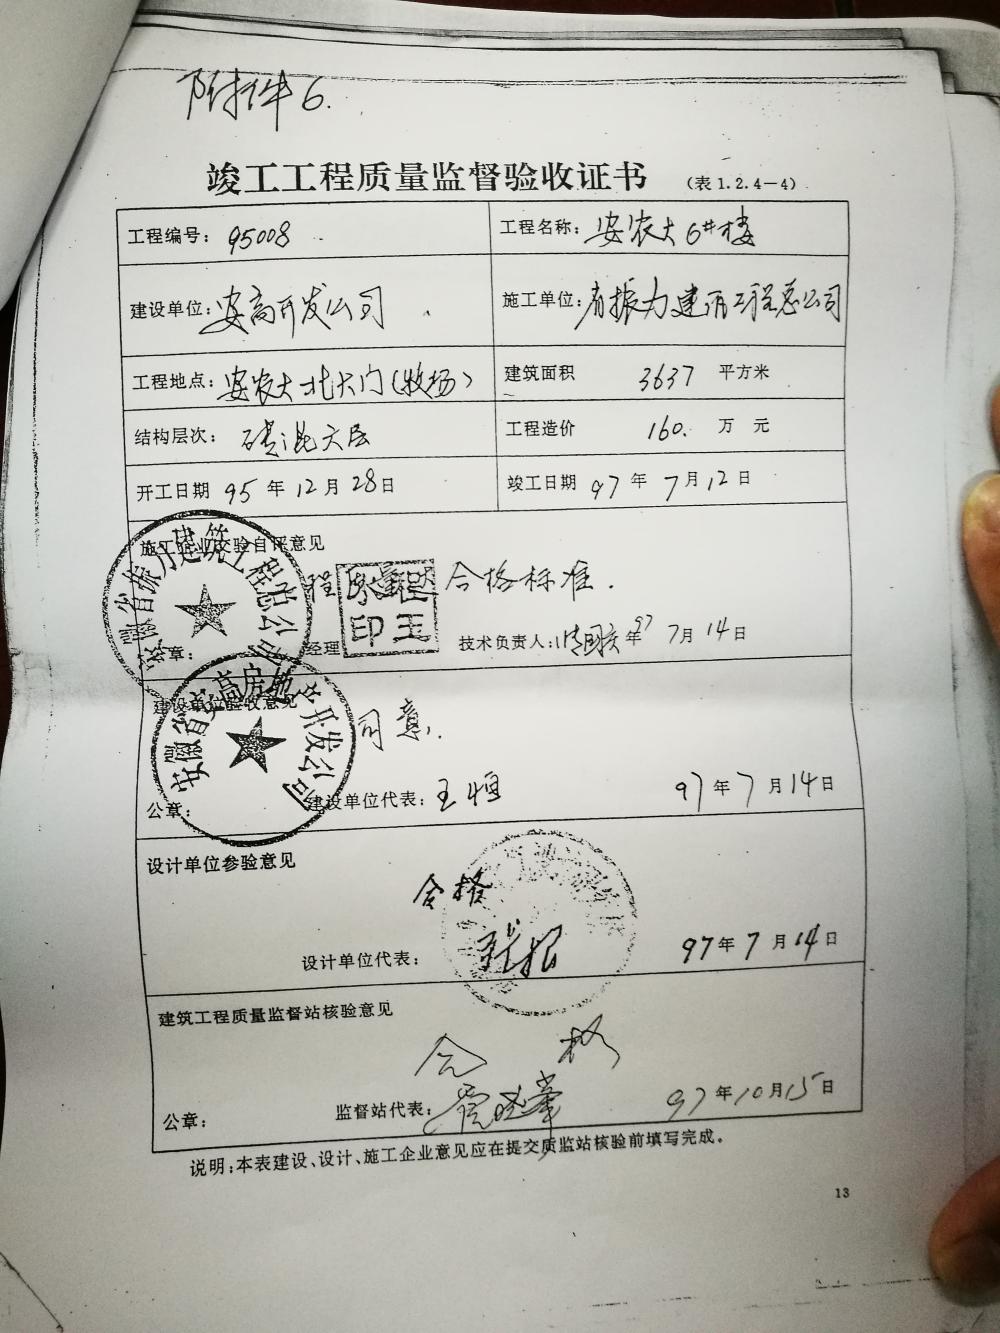 附件6.
竣工工程质量监督验收证书 (表1.2.4-4)
工程编号: 95008 工程名称: 安农大6#楼
建设单位: 安高开发公司 施工单位: 省振力建筑工程总公司
工程地点: 安农大北大门(牧场) 建筑面积 3637 平方米
结构层次: 砖混六层 工程造价 160. 万元
开工日期 95年12月28日 竣工日期 97年7月12日
施工企业交验自评意见
安徽省振力建筑工程总公司
程 合格标准.
印 玉
章: 经理 技术负责人: 97年7月14日
建设单位验收意见
安徽省安高房地产开发公司
同意.
公章: 建设单位代表: 王恒 97年7月14日
设计单位参验意见
合格
设计单位代表: 张 97年7月14日
建筑工程质量监督站核验意见
合格
公章: 监督站代表: 97年10月15日
说明:本表建设、设计、施工企业意见应在提交质监站核验前填写完成。
13